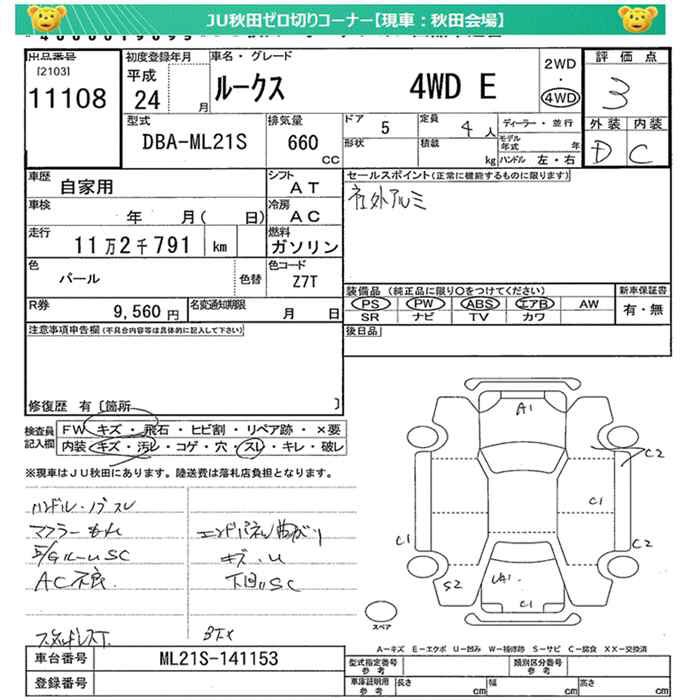 JU秋田ゼロ切りコーナー【現車：秋田会場】
出品番号
[2103]
11108
初度登録年月
平成
24 月
車名・グレード
ルークス 4WD E
2WD
・
4WD
評価点
3
外装 内装
D C
型式
DBA-ML21S
排気量
660
CC
ドア 5
形状
定員 4人
積載 kg
ディーラー・並行
モデル年式 年
ハンドル 左・右
車歴
自家用
シフト
AT
セールスポイント(正常に機能するものに限ります)
社外アルミ
車検
年 月( 日)
冷房
AC
走行
11万2千791 km
燃料
ガソリン
色
パール
色替
色コード
Z7T
装備品 (純正品に限り○をつけてください)
PS PW ABS エアB AW
SR ナビ TV カワ
新車保証書
有・無
R券
9,560 円
名変通知期限
月 日
後日品
注意事項申告欄(不具合内容等は具体的に記入して下さい)
修復歴 有 [箇所 ]
検査員
記入欄
FW キズ・飛石・ヒビ割・リペア跡・×要
内装 キズ・汚レ・コゲ・穴・スレ・キレ・破レ
※現車はJU秋田にあります。陸送費は落札店負担となります。
ハンドル・ノブスレ
マフラーもれ
エンドパネル曲がり
キズ・U
AC不良
下回りSC
スタッドレスT
A1
C2
C1
C1
C2
S2
UA1
C1
スペア
A－キズ E－エクボ U－凹み W－補修跡 S－サビ C－腐食 XX－交換済
車台番号
ML21S-141153
登録番号
型式指定番号
参考
類別区分番号
参考
車庫証明用
参考
長さ cm
幅 cm
高さ cm